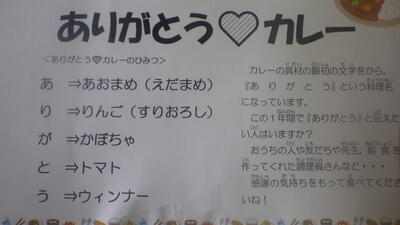 ありがとう♡カレー
<ありがとう♡カレーのひみつ>
あ ⇒あおまめ（えだまめ）
り ⇒りんご（すりおろし）
が ⇒かぼちゃ
と ⇒トマト
う ⇒ウィンナー
カレーの具材の最初の文字をから、
『ありがとう』という料理名
になっています。
この１年間で『ありがとう』と伝えた
い人はいますか？
おうちの人や友だちや先生、給食を
作ってくれた調理員さんなど・・・
感謝の気持ちをもって食べてくださ
いね！